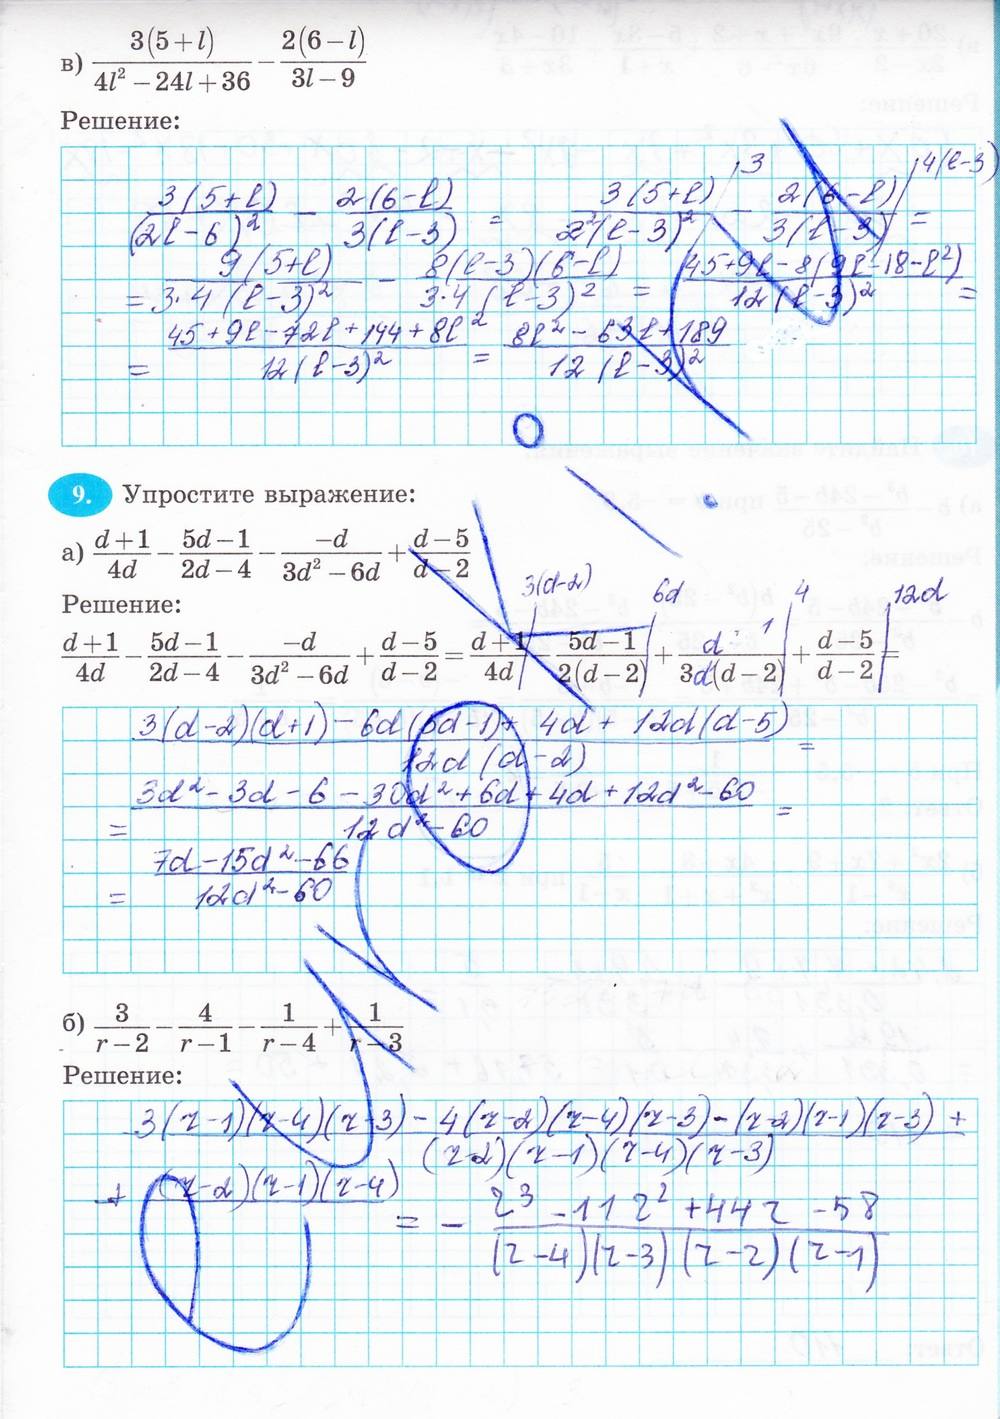 в) 3(5+l)/(4l² − 24l + 36) − 2(6−l)/(3l−9)
Решение:
3(5+l)/(2l−6)² − 2(6−l)/3(l−3) = 3(5+l)/2²(l−3)² /3 − 2(6−l)/3(l−3) /4(l−3) =
= 9(5+l)/3·4(l−3)² − 8(l−3)(6−l)/3·4(l−3)² = 45+9l−8(9l−18−l²)/12(l−3)² =
= 45+9l−72l+144+8l²/12(l−3)² = 8l²−63l+189/12(l−3)²
9. Упростите выражение:
а) (d+1)/4d − (5d−1)/(2d−4) − (−d)/(3d²−6d) + (d−5)/(d−2)
Решение:
(d+1)/4d − (5d−1)/(2d−4) − (−d)/(3d²−6d) + (d−5)/(d−2) = (d+1)/4d /3(d−2) − (5d−1)/2(d−2) /6d + d 1/3d(d−2) /4 + (d−5)/(d−2) /12d =
3(d−2)(d+1)−6d(5d−1)+4d+12d(d−5)/12d(d−2) =
= 3d²−3d−6−30d²+6d+4d+12d²−60/12d²−60 =
= 7d−15d²−66/12d²−60
б) 3/(r−2) − 4/(r−1) − 1/(r−4) + 1/(r−3)
Решение:
3(r−1)(r−4)(r−3)−4(r−2)(r−4)(r−3)−(r−2)(r−1)(r−3)+
(r−2)(r−1)(r−4)(r−3)
+(r−2)(r−1)(r−4) = − r³−11r²+44r−58/(r−4)(r−3)(r−2)(r−1)